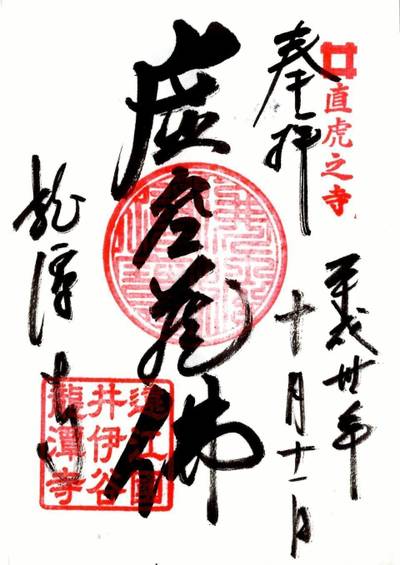 直虎之寺
奉拝
平成卅年
十月十一日
虚空蔵佛
龍潭寺
遠江國
井伊谷
龍潭寺